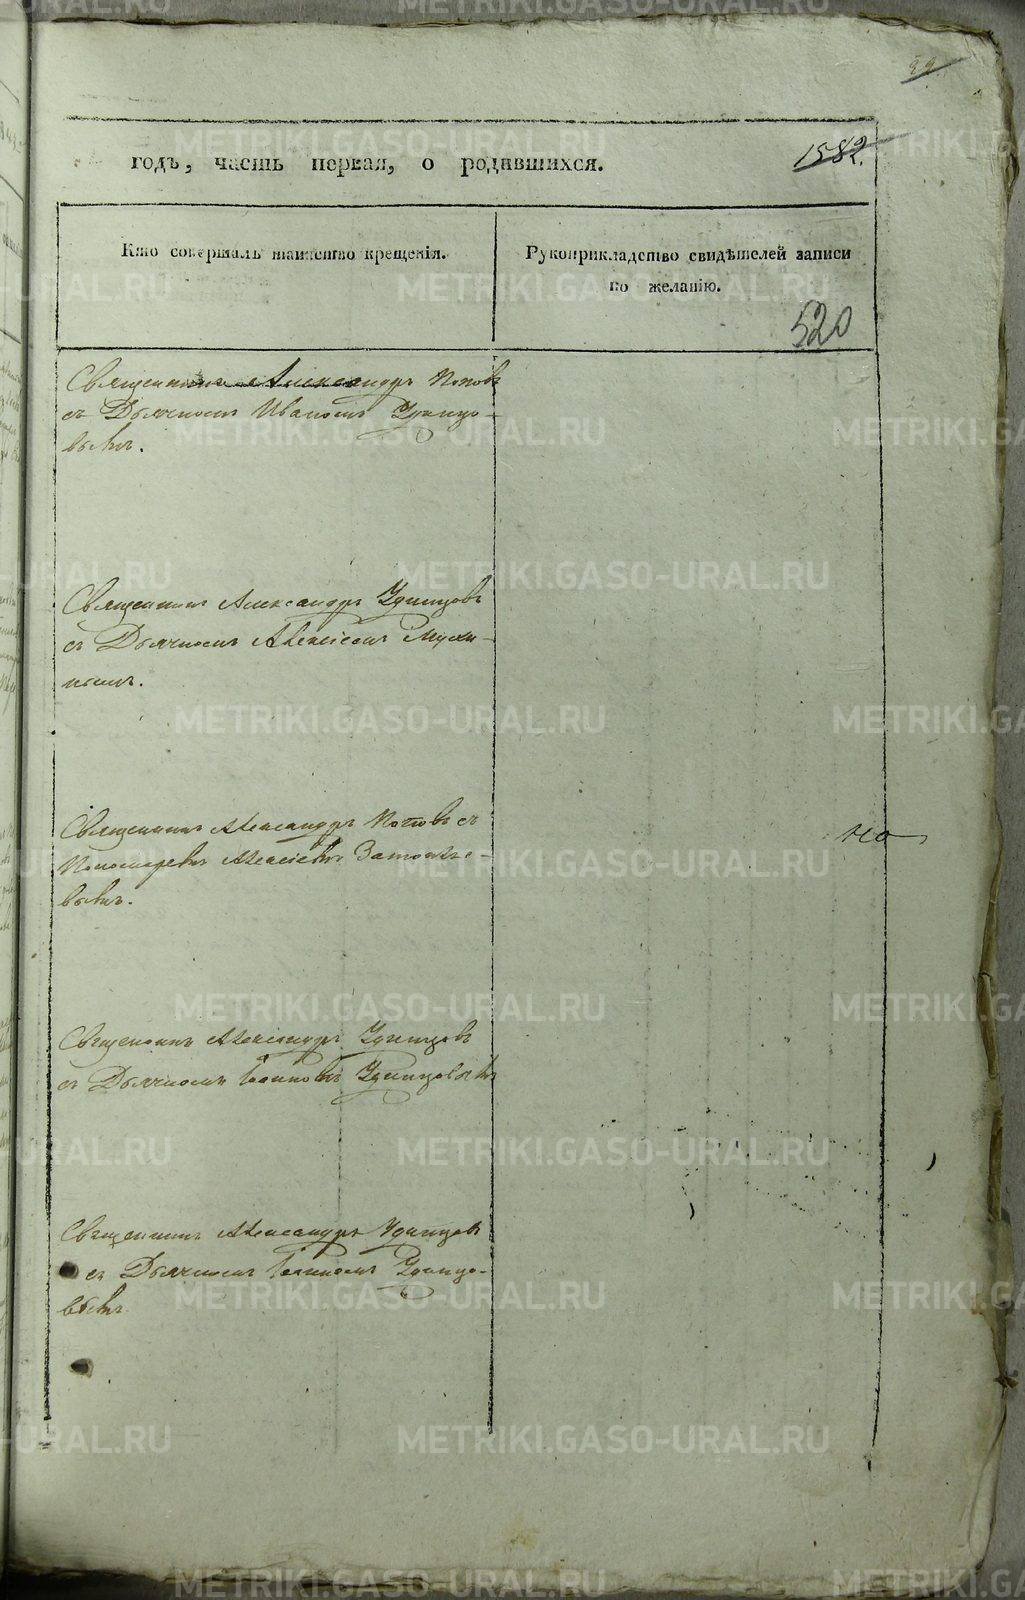 99
годъ, часть первая, о родившихся.
1582.
Кто совершалъ таинство крещенія.
Рукоприкладство свидѣтелей записи
по желанію.
520
Священникъ Александръ Поповъ
съ Дьячкомъ Иваномъ Удинцо-
вымъ.
Священникъ Александръ Удинцовъ
съ Дьячкомъ Алексіемъ Мухи-
нымъ.
Священникъ Александръ Поповъ съ
Пономаремъ Алексіемъ
вымъ.
Священникъ Александръ Удинцовъ
съ Дьячкомъ Іоанномъ Удинцовымъ
Священникъ Александръ Удинцовъ
съ Дьячкомъ Іоанномъ Удинцо-
вымъ.
METRIKI.GASO-URAL.RU